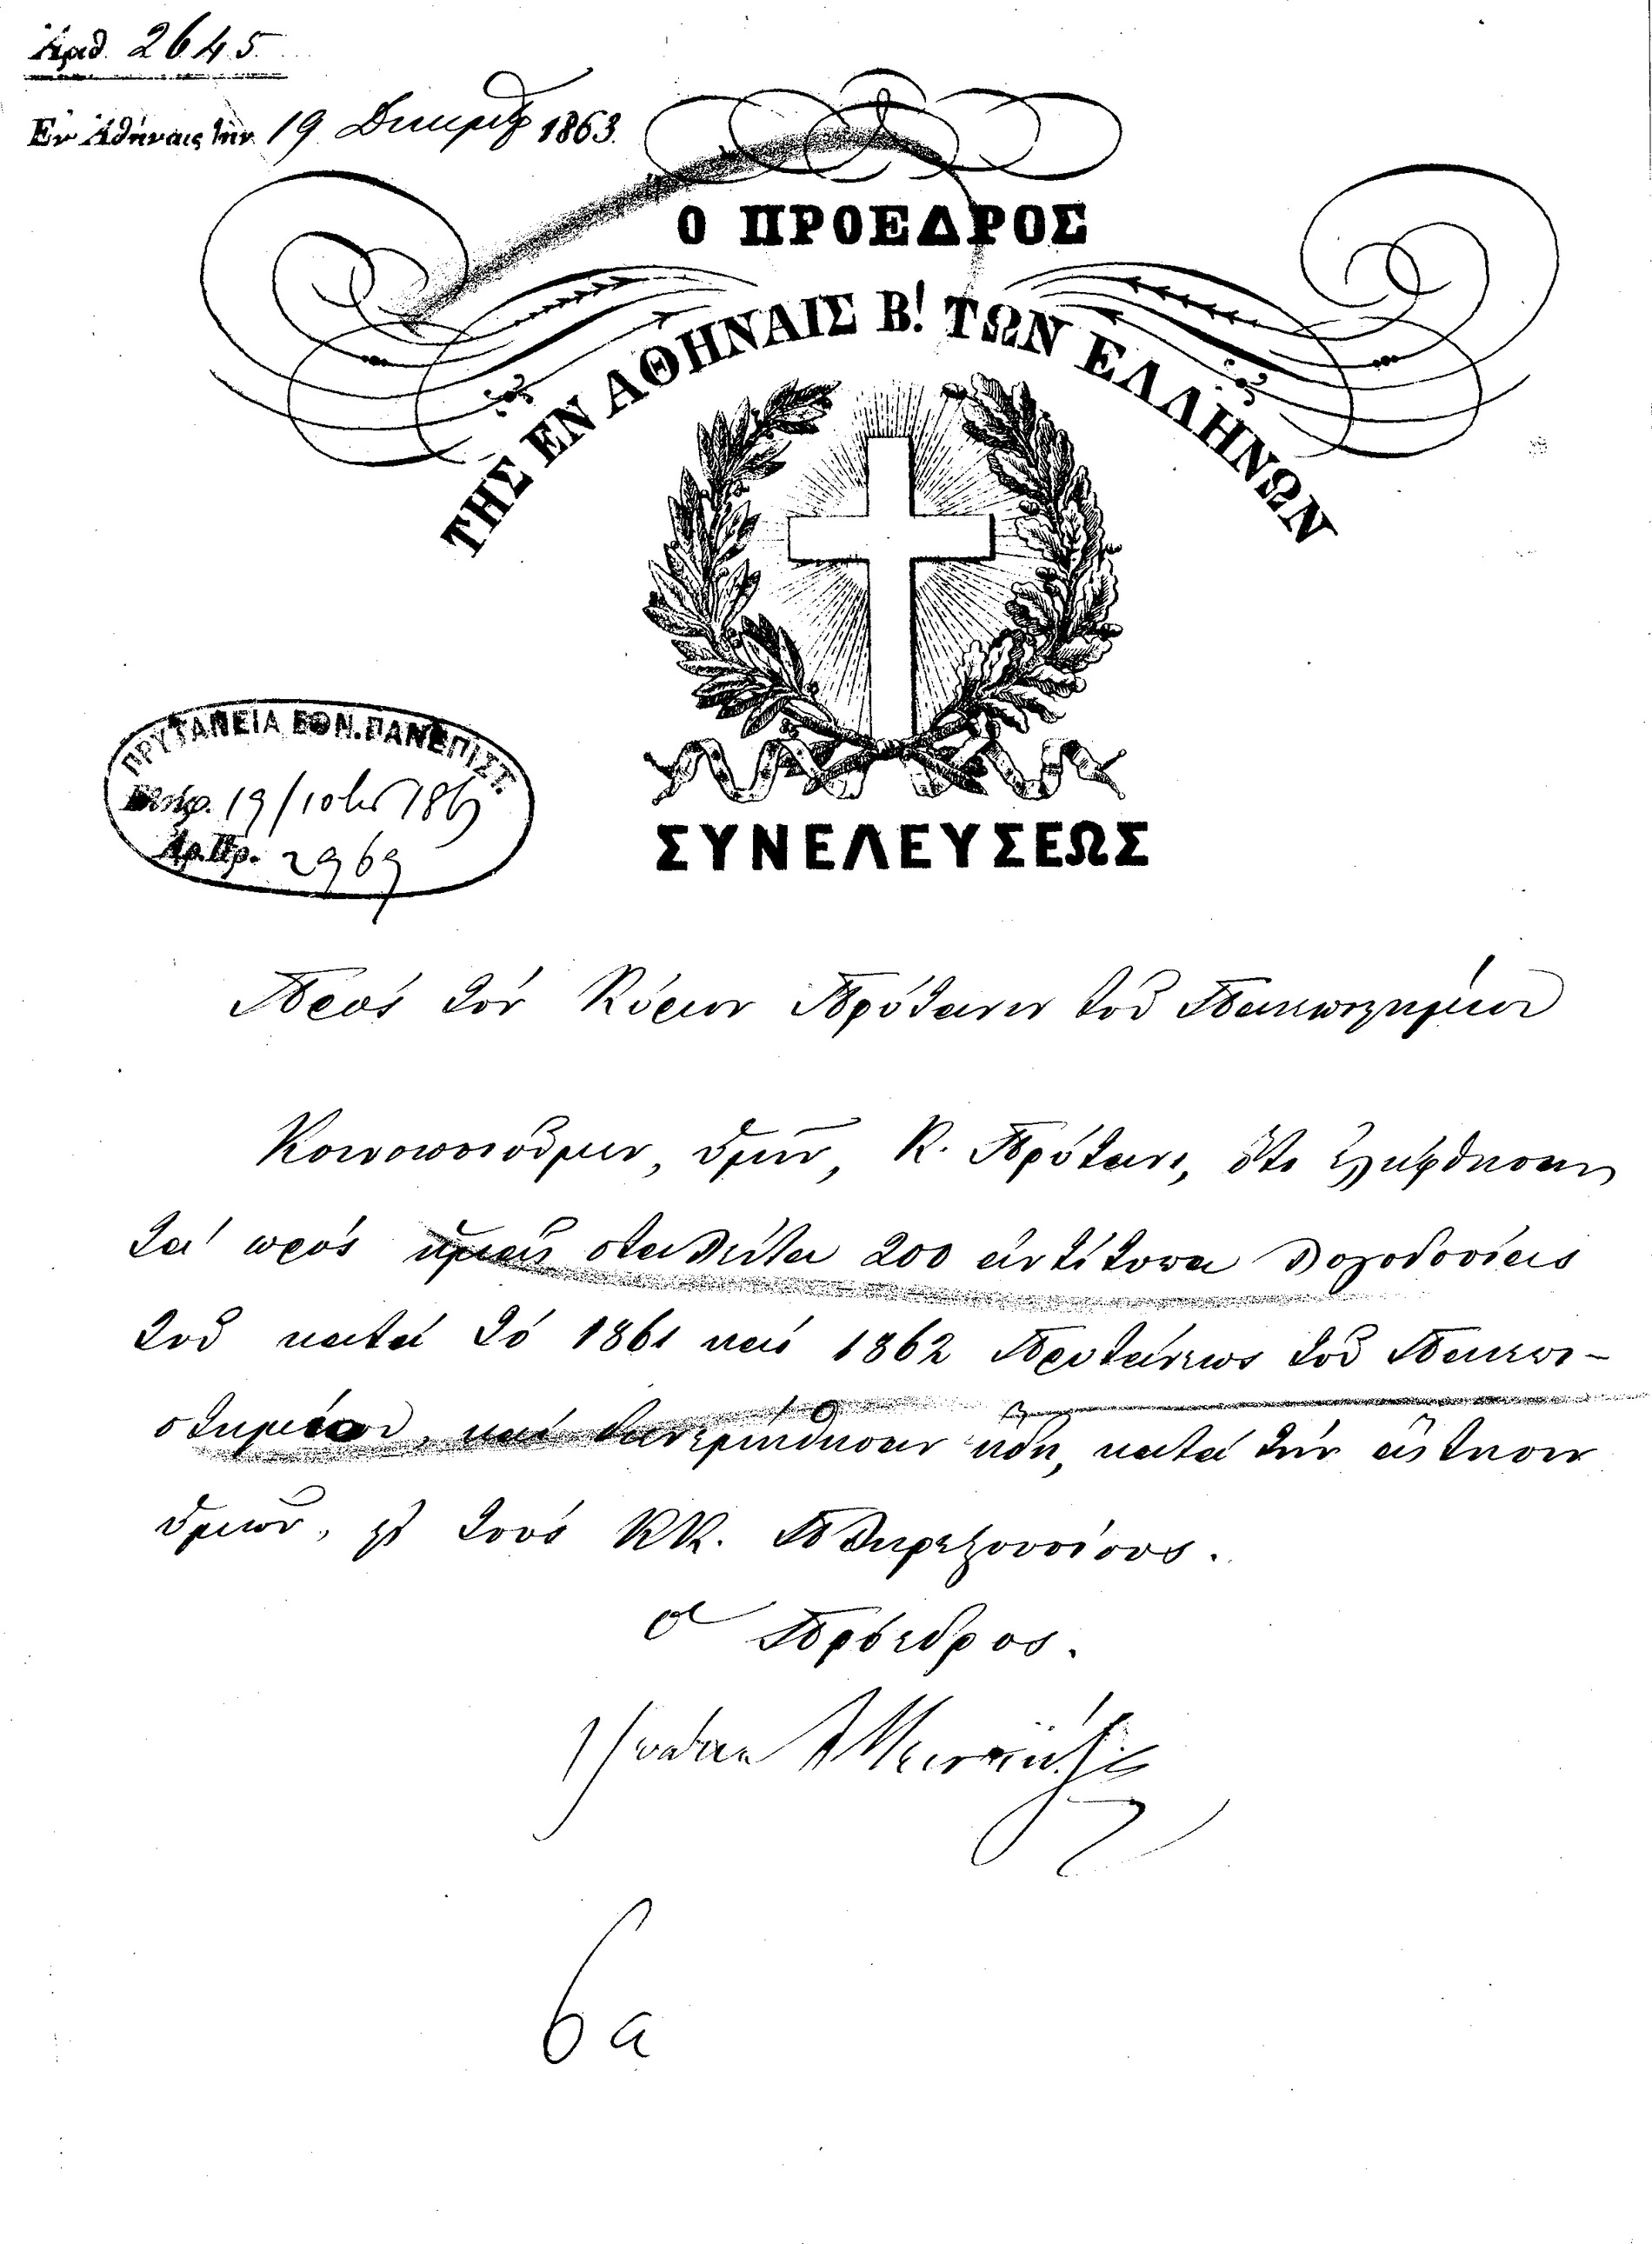 Ἀριθ. 2645
Ἐν Ἀθήναις τὴν 19 Δεκεμβρ 1863.
Ο ΠΡΟΕΔΡΟΣ
ΤΗΣ ΕΝ ΑΘΗΝΑΙΣ Β! ΤΩΝ ΕΛΛΗΝΩΝ
ΣΥΝΕΛΕΥΣΕΩΣ
ΠΡΥΤΑΝΕΙΑ ΕΘΝ. ΠΑΝΕΠΙΣΤ.
19/10bρ 186
Ἀρ.Πρ. 2969
Πρὸς τὸν Κύριον Πρύτανιν τοῦ Πανεπιστημίου
Κοινοποιοῦμεν ὑμῖν, Κ. Πρύτανι, ὅτι ἐλήφθησαν
τὰ πρὸς ἡμᾶς σταλέντα 200 ἀντίτυπα λογοδοσίας
τοῦ κατὰ τὸ 1861 καὶ 1862 Πρυτάνεως τοῦ Πανεπι-
στημίου, καὶ διενεμήθησαν ἤδη, κατὰ τὴν αἴτησιν
ὑμῶν, εἰς τοὺς ΚΚ. Πληρεξουσίους.
Ὁ Πρόεδρος.
6 a